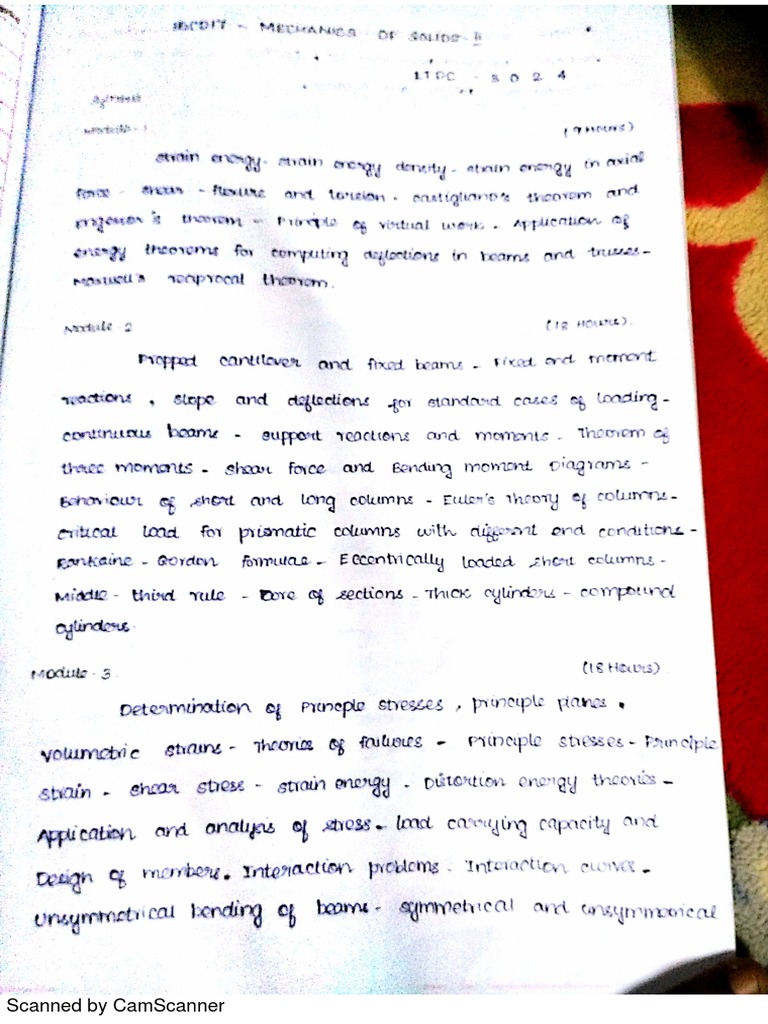 MECHANICS OF SOLIDS - II
LTPC - 3 0 2 4
Module - 1 (9 Hours)
strain energy - strain energy density - strain energy in axial
force - shear - flexure and torsion - castigliano's theorem and
theorem - Principle of virtual work - Application of
energy theorems for computing deflections in beams and trusses -
Maxwell's reciprocal theorem.
Module - 2 (18 Hours).
Propped cantilever and fixed beams - Fixed end moment
reactions, slope and deflections for standard cases of loading -
continuous beams - support reactions and moments - Theorem of
three moments - shear force and Bending moment Diagrams -
Behaviour of short and long columns - Euler's Theory of columns -
critical load for prismatic columns with different end conditions -
Rankine - Gordon formulae - Eccentrically loaded short columns -
Middle - third rule - core of sections - Thick cylinders - compound
cylinders.
Module - 3 (18 Hours)
Determination of Principle stresses, principle planes.
Volumetric strains - Theories of failures - Principle stresses - Principle
strain - shear stress - strain energy - Distortion energy theories -
Application and analysis of stress - load carrying capacity and
Design of members. Interaction problems - Interaction curves -
Unsymmetrical bending of beams - symmetrical and unsymmetrical
Scanned by CamScanner